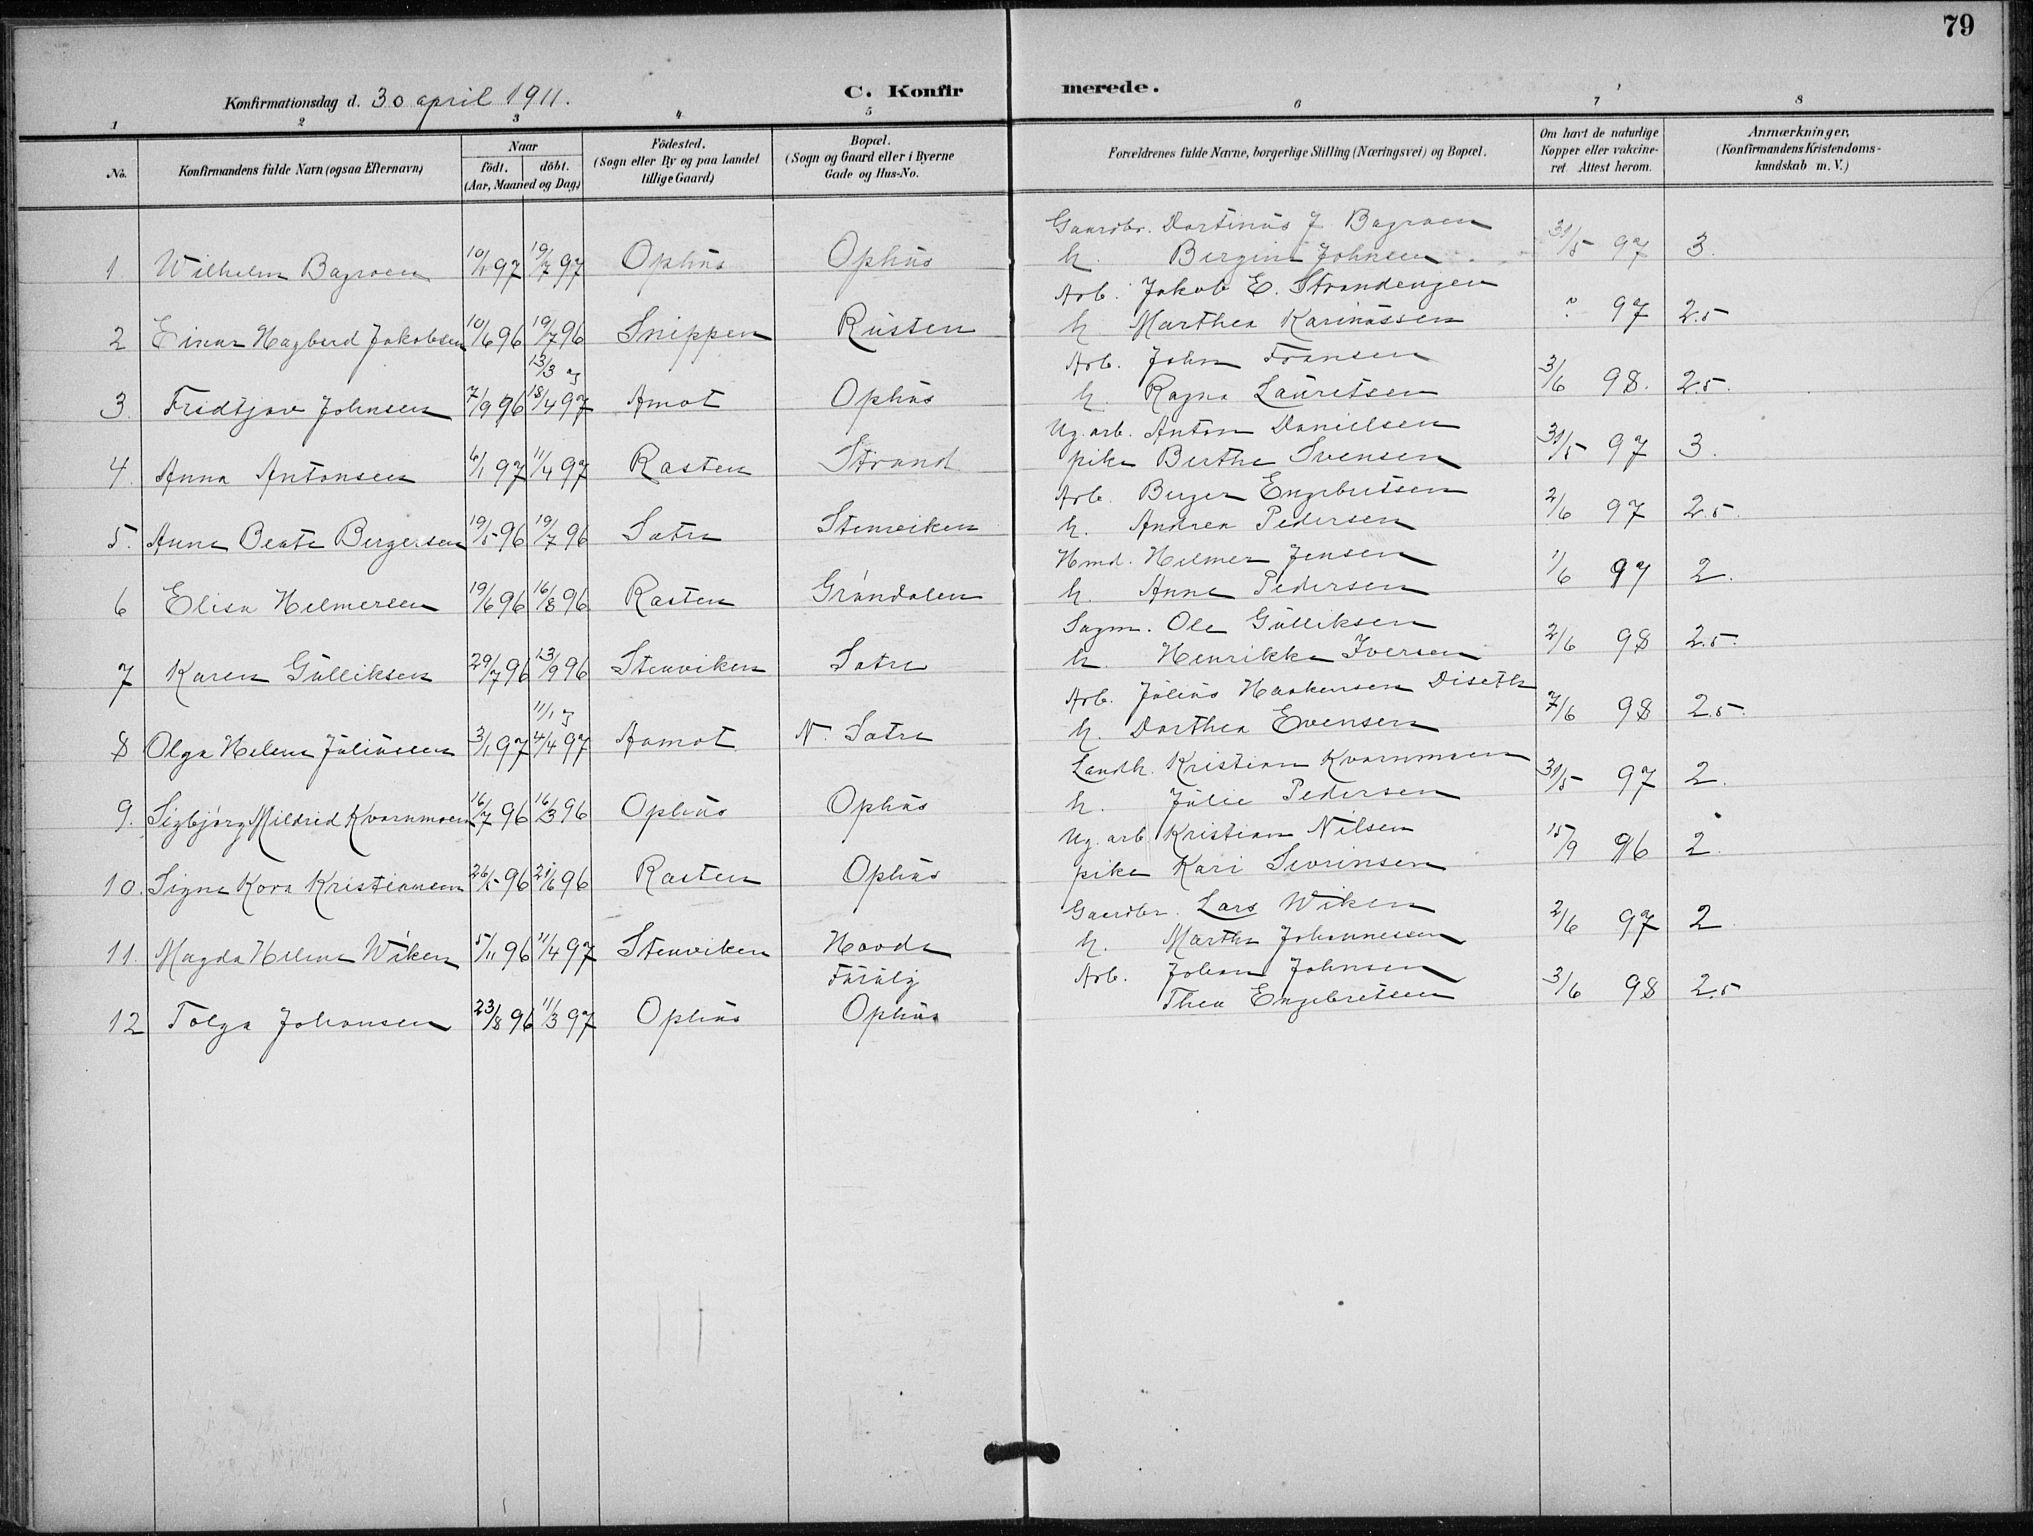 79
Konfirmationsdag d. 30 april 1911. C. Konfirmerede.
1 2 3 4 5 6 7 8
No. Konfirmandens fulde Navn (ogsaa Efternavn) Naar födt. döbt. (Aar, Maaned og Dag.) Födested. (Sogn eller By og paa Landet tillige Gaard.) Bopæl. (Sogn og Gaard eller i Byerne Gade og Hus-No. Forældrenes fulde Navne, borgerlige Stilling (Næringsvei) og Bopæl. Om havt de naturlige Kopper eller vakcineret. Attest herom. Anmærkninger, (Konfirmandens Kristendomskundskab m. V.)
Gaardbr. Dortinüs J. Bagroen
1 Wilhelm Bagroen 10/1 97 19/7 97 Ophüs Ophüs h. Bergine Johnsen 31/5 97 3.
Arb. Jakob E. Strandengen
2 Einar Hagbard Jakobsen 10/6 96 19/7 96 Snippen Rüsten h. Marthea Karinüssen ? 97 2.5
13/3 og
Arb. John Fransen
3. Fridtjov Johnsen 7/9 96 18/4 97 Amot Ophüs h. Ragna Laüritsen 3/6 98. 2.5.
Ug. arb. Anton Danielsen
4. Anna Antonsen 6/1 97 11/4 97 Rasten Strand pike Berthe Svensen 31/5 97 3.
Arb. Berger Engebretsen
5. Anne Beate Bergersen 19/5 96 19/7 96 Satre Stenviken h. Andrea Pedersen 2/6 97 2.5.
Hmd. Helmer Jensen
6 Elisa Helmersen 19/6 96 16/8 96 Rasten Gröndalen h. Anne Pedersen 1/6 97 2.
Sagm. Ole Gülliksen
7 Karen Gülliksen 29/7 96 13/9 96 Stenviken Satre h. Henrikke Iversen 2/6 98 2.5.
Arb. Jüliüs Haakensen Diseth
11/1 og
8 Olga Helene Jüliüssen 3/1 97 4/4 97 Aamot N. Satre h. Dorthea Evensen 7/6 98 2.5.
Landh. Kristian Kvarnmoen
9. Sigbjörg Mildred Kvarnmoen 16/7 96 16/3 96 Ophüs Ophüs h. Jülie Pedersen 31/5 97 2.
Ug. arb. Kristian Nilsen
10. Signe Kora Kristiansen 26/5 96 21/6 96 Rasten Ophüs pike Kari Sevrinsen 15/9 96 2.
Gaardbr. Lars Wiken
11. Magda Helene Wiken 5/11 96 11/4 97 Stenviken Hovde h. Marthe Johannessen 2/6 97 2
Füsülz
Arb. Johan Johnsen
12 Tolga Johansen 23/8 96 11/3 97 Ophüs Ophüs Thea Engebretsen 3/6 98 2.5